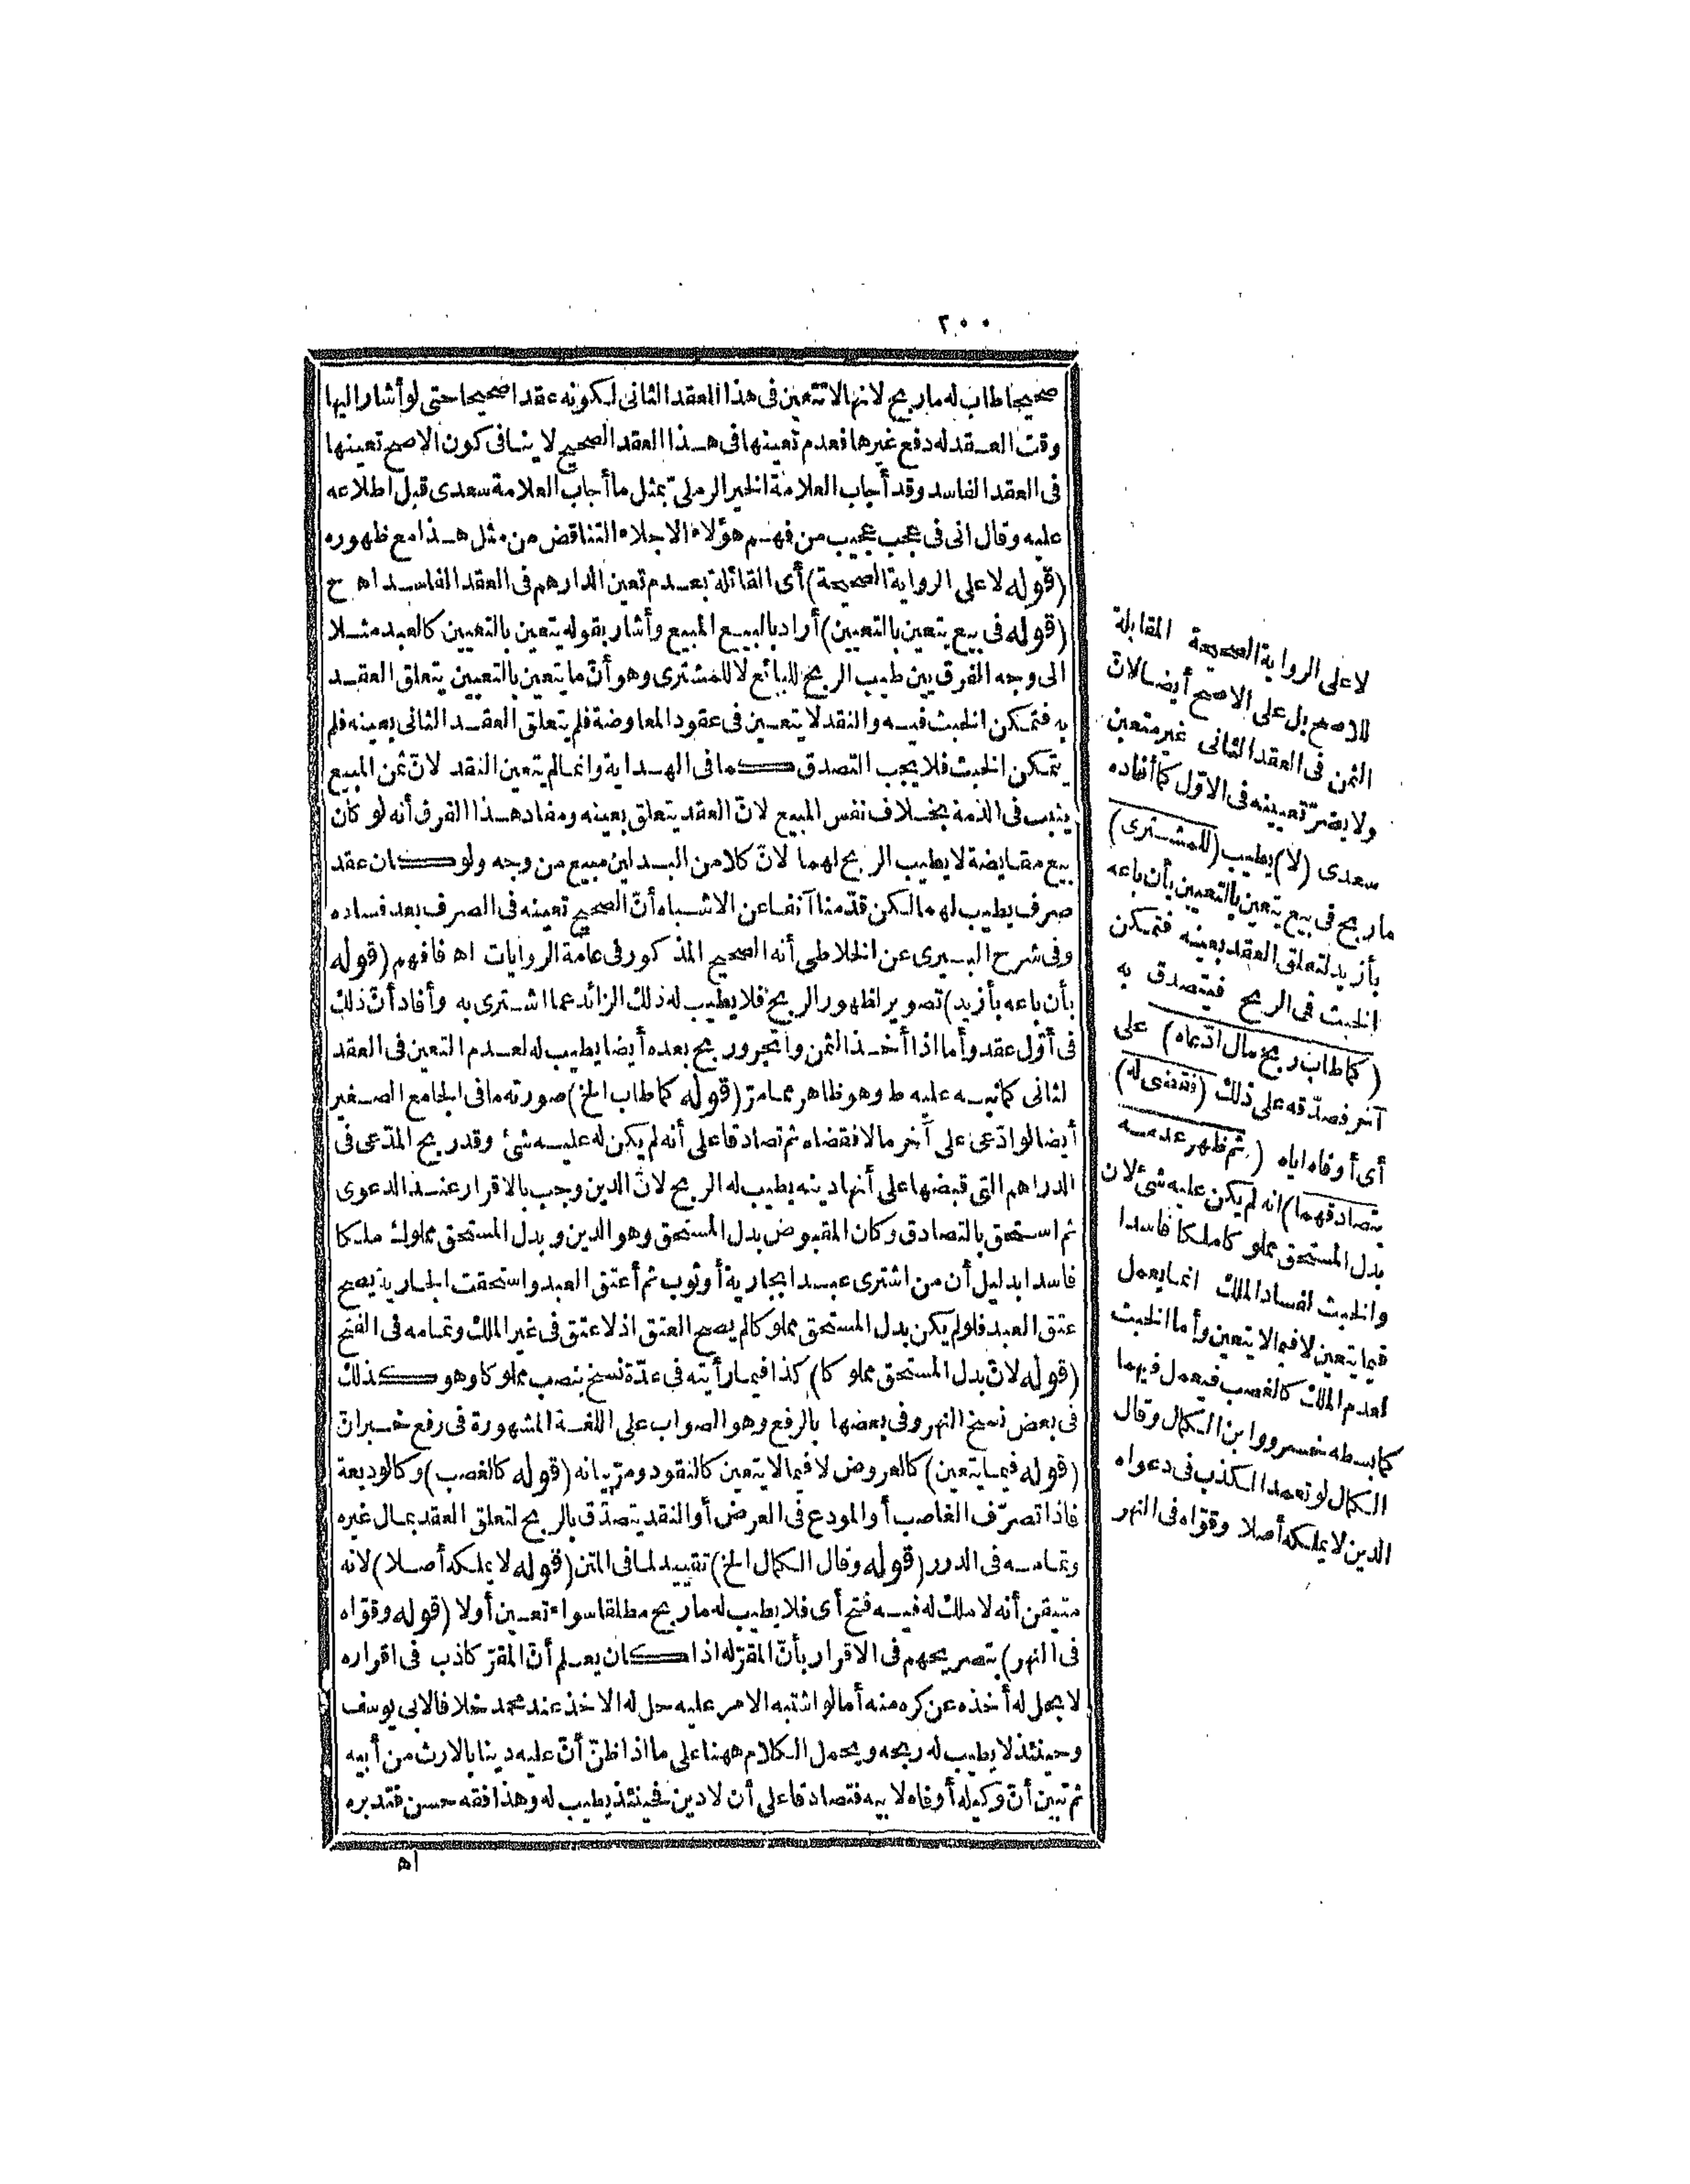 ٢٠٠
صحيحا طاب له ما ربح لانها لا تتعين فى هذا العقد الثانى لكونه عقدا صحيحا حتى لو أشار اليها
وقت العقد له دفع غيرها فعدم تعينها فى هذا العقد الصحيح لا ينافى كون الاصح تعينها
فى العقد الفاسد وقد أجاب العلامة الخير الرملىّ بمثل ما أجاب العلامة سعدى قبل اطلاعه
عليه وقال انى فى عجب عجيب من فهم هؤلاء الاجلاء التناقض من مثل هذا مع ظهوره
(قوله لا على الرواية الصحيحة) أى القائلة بعدم تعين الدارهم فى العقد الفاسد اه ح
(قوله فى بيع يتعين بالتعيين) أراد بالبيع المبيع وأشار بقوله يتعين بالتعيين كالعبد مثلا
الى وجه الفرق بين طيب الربح للبائع لا للمشترى وهو أنّ ما يتعين بالتعيين يتعلق العقد
به فتمكن الخبث فيه والنقد لا يتعين فى عقود المعاوضة فلم يتعلق العقد الثانى بعينه فلم
يتمكن الخبث فلا يجب التصدق كما فى الهداية وانما لم يتعين النقد لانّ ثمن المبيع
يثبت فى الذمة بخلاف نفس المبيع لانّ العقد يتعلق بعينه ومفاد هذا الفرق أنه لو كان
بيع مقايضة لا يطيب الربح لهما لانّ كلا من البدلين مبيع من وجه ولو كان عقد
صرف يطيب لهما لكن قدّمنا آنفا عن الاشباه أنّ الصحيح تعينه فى الصرف بعد فساده
وفى شرح البيرى عن الخلاطى أنه الصحيح المذكور فى عامّة الروايات اه فافهم (قوله
بأن باعه بأزيد) تصوير لظهور الربح فلا يطيب له ذلك الزائد عما اشترى به وأفاد أنّ ذلك
فى أوّل عقد وأما اذا أخذ الثمن واتجر وربح بعده أيضا يطيب له لعدم التعين فى العقد
لثانى كما نبه عليه ط وهو ظاهر مما مرّ (قوله كما طاب الخ) صورته ما فى الجامع الصغير
أيضا لو ادّعى على آخر مالا فقضاه ثم تصادقا على أنه لم يكن له عليه شئ وقد ربح المدّعى فى
الدراهم التى قبضها على أنها دينه يطيب له الربح لانّ الدين وجب بالاقرار عند الدعوى
ثم استحق بالتصادق وكان المقبوض بدل المستحق وهو الدين وبدل المستحق مملوك ملكا
فاسدا بدليل أن من اشترى عبدا بجارية أو ثوب ثم أعتق العبد واستحقت الجارية يصح
عتق العبد فلو لم يكن بدل المستحق مملوكا لم يصح العتق اذ لا عتق فى غير الملك وتمامه فى الفتح
(قوله لانّ بدل المستحق مملوكا) كذا فيما رأيته فى عدّة نسخ بنصب مملوكا وهو كذلك
فى بعض نسخ النهر وفى بعضها بالرفع وهو الصواب على اللغة المشهورة فى رفع خبر انّ
(قوله فيما يتعين) كالعروض لا فيما لا يتعين كالنقود ومرّ بيانه (قوله كالغصب) وكالوديعة
فاذا تصرّف الغاصب أو المودع فى العرض أو النقد يتصدّق بالربح لتعلق العقد بمال غيره
وتمامه فى الدرر (قوله وقال الكمال الخ) تقييد لما فى المتن (قوله لا يملكه أصلا) لانه
متيقن أنه لا ملك له فيه فتح أى فلا يطيب له ما ربح مطلقا سواء تعين أولا (قوله وقوّاه
فى النهر) بتصريحهم فى الاقرار بأنّ المقرّ له اذا كان يعلم أنّ المقرّ كاذب فى اقراره
لا يحل له أخذه عن كره منه أما لو اشتبه الامر عليه حل له الاخذ عند محمد خلافا لابى يوسف
وحينئذ لا يطيب له ربحه ويحمل الكلام ههنا على ما اذا ظنّ أنّ عليه دينا بالارث من أبيه
ثم تبين أنّ وكيله أوفاه لابيه فتصادقا على أن لا دين فحينئذ يطيب له وهذا فقه حسن فتدبره
اه
لا على الرواية الصحيحة المقابلة
للاصح بل على الاصح أيضا لانّ
الثمن فى العقد الثانى غير متعين
ولا يضرّ تعيينه فى الاوّل كما أفاده
سعدى (لا) يطيب (للمشترى)
ما ربح فى بيع يتعين بالتعيين بأن باعه
بأزيد لتعلق العقد بعينه فتمكن
الخبث فى الربح فيتصدق به
(كما طاب ربح مال ادّعاه) على
آخر فصدّقه على ذلك (فقضى له)
أى أوفاه اياه (ثم ظهر عدمه
بتصادقهما) انه لم يكن عليه شئ لان
بدل المستحق مملوكا ملكا فاسدا
والخبث لفساد الملك انما يعمل
فيما يتعين لا فيما لا يتعين وأما الخبث
لعدم الملك كالغصب فيعمل فيهما
كما بسطه خسرو وابن الكمال وقال
الكمال لو تعمد الكذب فى دعواه
الدين لا يملكه أصلا وقوّاه فى النهر